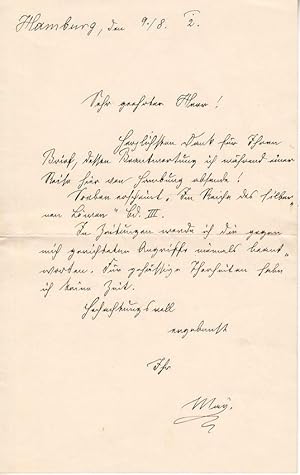 Hamburg, den 9./8. 2.
Sehr geehrter Herr!
Herzlichsten Dank für Ihren
Brief, dessen Beantwortung ich während einer
Reise hier von Hamburg absende!
Soeben erscheint „Im Reiche des silber-
nen Löwen" Bd. III.
In Zeitungen werde ich die gegen
mich gerichteten Angriffe niemals beant-
worten. Für gehässige Thorheiten habe
ich keine Zeit.
Hochachtungsvoll
ergebenst
Ihr
May.